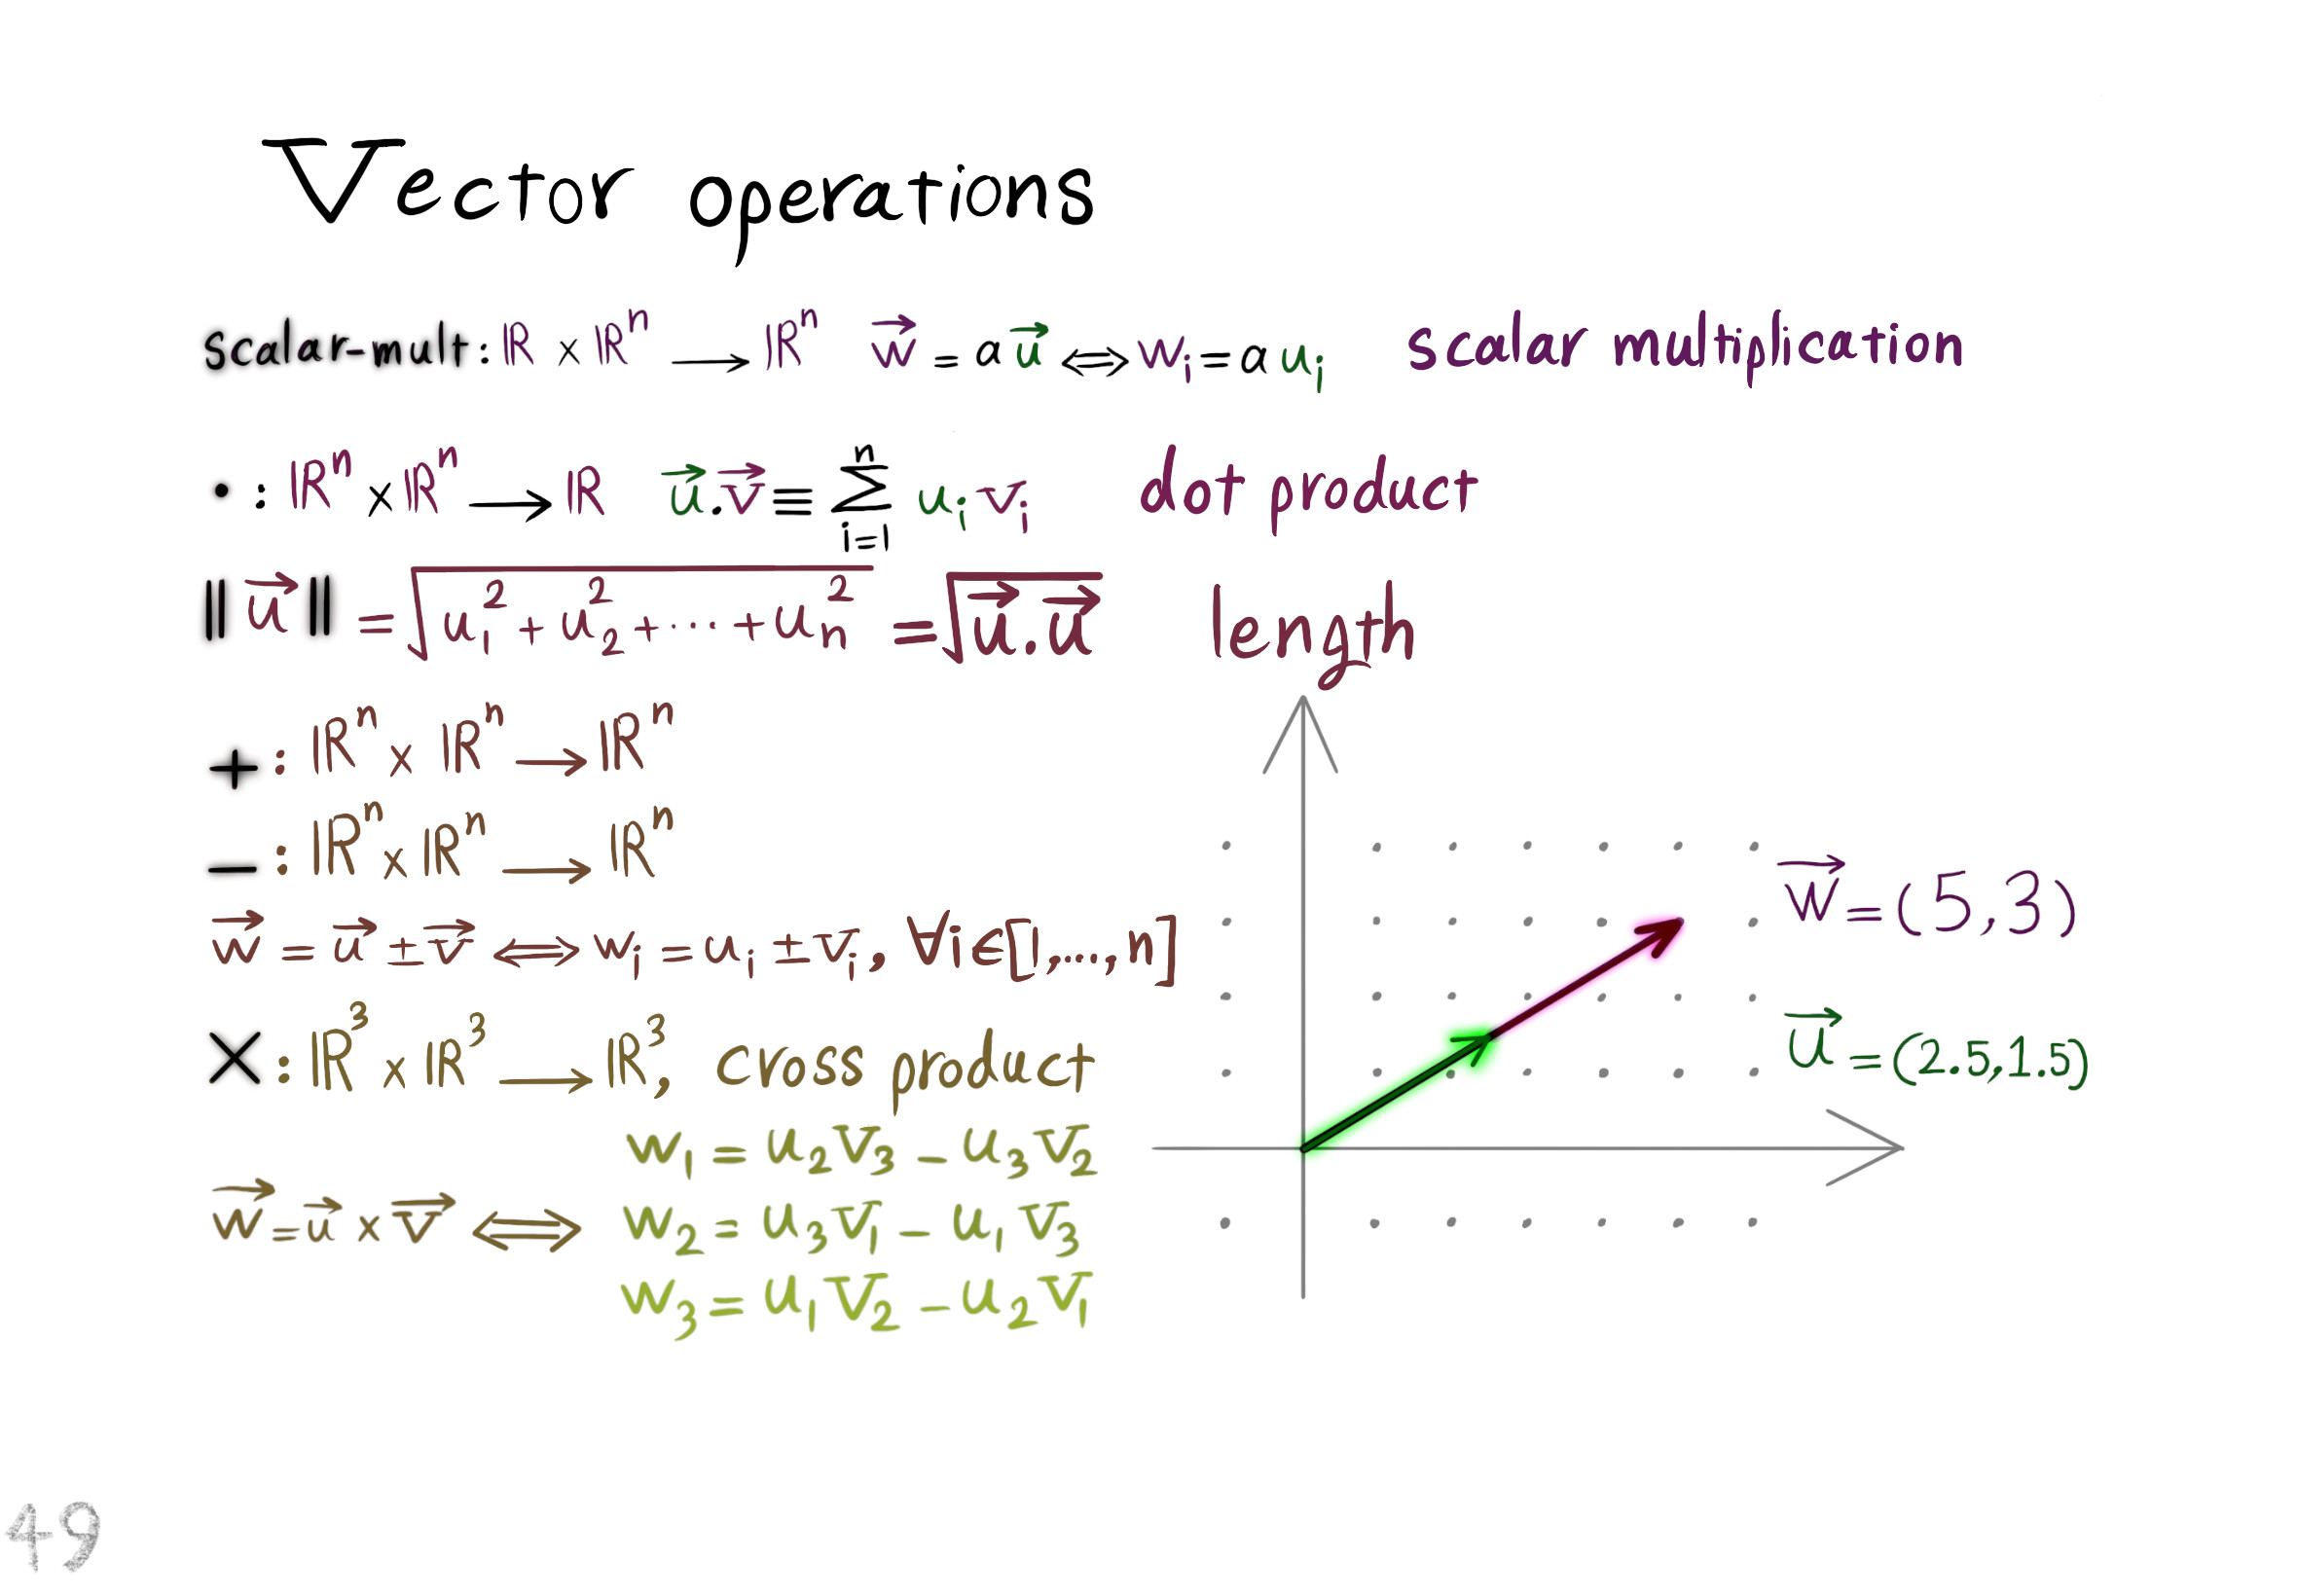 Vector operations
scalar-mult: ℝ × ℝⁿ ⟶ ℝⁿ w⃗ = a u⃗ ⟺ wᵢ = a uᵢ scalar multiplication
• : ℝⁿ × ℝⁿ ⟶ ℝ u⃗ . v⃗ ≡ ∑ᵢ₌₁ⁿ uᵢ vᵢ dot product
‖ u⃗ ‖ = √(u₁² + u₂² + ⋯ + uₙ²) = √(u⃗ . u⃗) length
+ : ℝⁿ × ℝⁿ ⟶ ℝⁿ
− : ℝⁿ × ℝⁿ ⟶ ℝⁿ
w⃗ = u⃗ ± v⃗ ⟺ wᵢ = uᵢ ± vᵢ, ∀i∈[1,....,n]
× : ℝ³ × ℝ³ ⟶ ℝ³, cross product
w⃗ = u⃗ × v⃗ ⟺
w₁ = u₂v₃ − u₃v₂
w₂ = u₃v₁ − u₁v₃
w₃ = u₁v₂ − u₂v₁
w⃗ = (5,3)
u⃗ = (2.5,1.5)
49